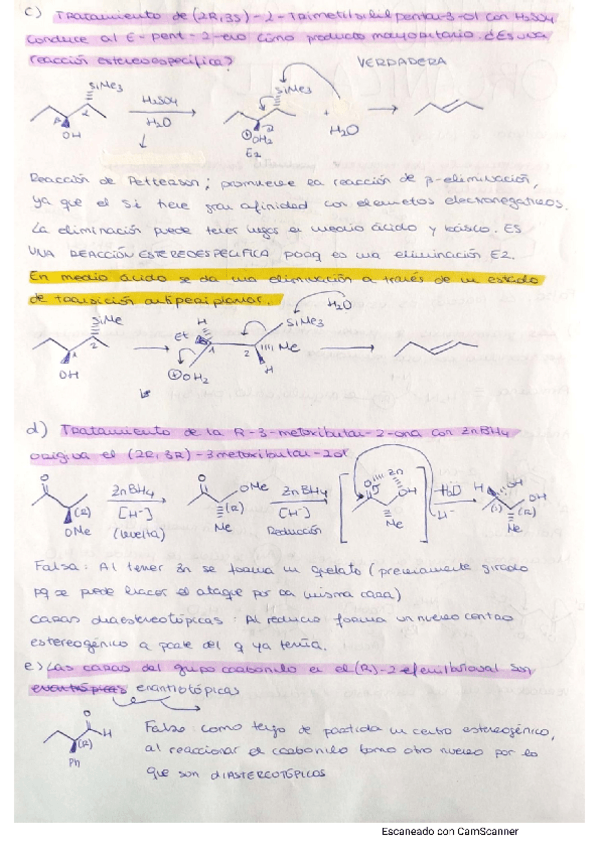 c) Tratamiento de (2R,3S)-2-Trimetilsililpentan-3-ol con H2SO4
conduce al E-pent-2-eno como producto mayoritario. ¿Es una
reacción estereoespecífica? VERDADERA
SiMe3
H2SO4
H2O
OH
2
SiMe3
+
H2O
OH2
E2
Reacción de Petterson; promueve la reacción de β-eliminación,
ya que el Si tiene gran afinidad con elementos electronegativos.
La eliminación puede tener lugar en medio ácido y básico. ES
UNA REACCIÓN ESTEREOESPECIFICA porq es una eliminación E2.
En medio ácido se da una eliminación a través de un estado
de transición antiperiplanar.
SiMe
H
H2O
SiMe3
Et
1
2
Me
OH
OH2
H
d) Tratamiento de la R-3-metoxibutan-2-ona con ZnBH4
origina el (2R,3R)-3metoxibutan-2ol
O
(R)
OMe
ZnBH4
[H-]
(vuelta)
O
OMe
(R)
Me
ZnBH4
[H-]
Reducción
Zn
OH
Me
H2O
H-
H
OH
OH
(R)
Me
Falsa: Al tener Zn se forma un quelato (previamente girado
pq se puede hacer el ataque por la misma cara)
caras diastereotópicas: Al reducir forma un nuevo centro
estereogénico a parte del q ya tenía.
e) Las caras del grupo carbonilo en el (R)-2-fenilbutanal son
enantiotópicas
O
H
(R)
Ph
Falso como tengo de partida un centro estereogénico,
al reaccionar el carbonilo formo otro nuevo por lo
que son DIASTEREOTÓPICAS
Escaneado con CamScanner